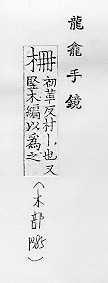 龍龕手鏡
柵初革反村柵也又
竪木編以為之
(木部
1985
)